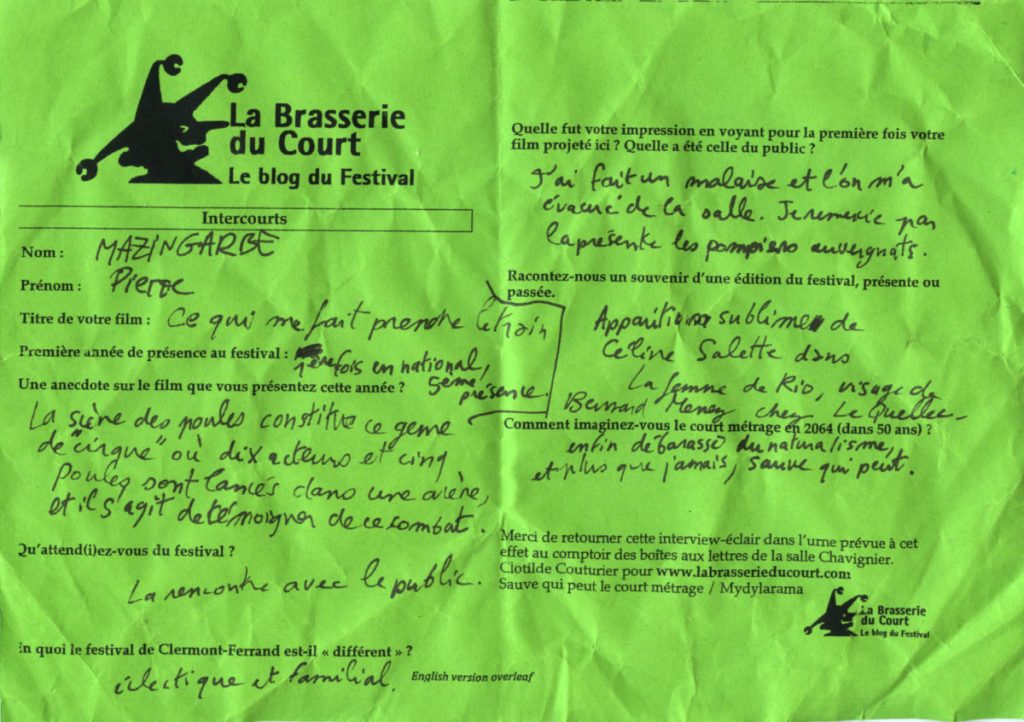 La Brasserie
du Court
Le blog du Festival
Intercourts
Nom : MAZINGARBE
Prénom : Pierre
Titre de votre film : Ce qui me fait prendre le train
Première année de présence au festival : 1ère fois en national,
5ème présence.
Une anecdote sur le film que vous présentez cette année ?
La scène des poules constitue ce genre
de "cirque" où dix acteurs et cinq
poules sont lancés dans une arène,
et il s'agit de témoigner de ce combat.
Qu'attend(i)ez-vous du festival ?
La rencontre avec le public.
En quoi le festival de Clermont-Ferrand est-il « différent » ?
éclectique et familial.
English version overleaf
Quelle fut votre impression en voyant pour la première fois votre
film projeté ici ? Quelle a été celle du public ?
J'ai fait un malaise et l'on m'a
évacué de la salle. Je remercie par
la présente les pompiers auvergnats.
Racontez-nous un souvenir d'une édition du festival, présente ou
passée.
Apparition sublime de
Céline Salette dans
La femme de Rio, visage de
Bernard Menez chez Le Quellec
Comment imaginez-vous le court métrage en 2064 (dans 50 ans) ?
enfin débarassé du naturalisme,
et plus que jamais, sauve qui peut.
Merci de retourner cette interview-éclair dans l'urne prévue à cet
effet au comptoir des boîtes aux lettres de la salle Chavignier.
Clotilde Couturier pour www.labrasserieducourt.com
Sauve qui peut le court métrage / Mydylarama
La Brasserie
du Court
Le blog du Festival